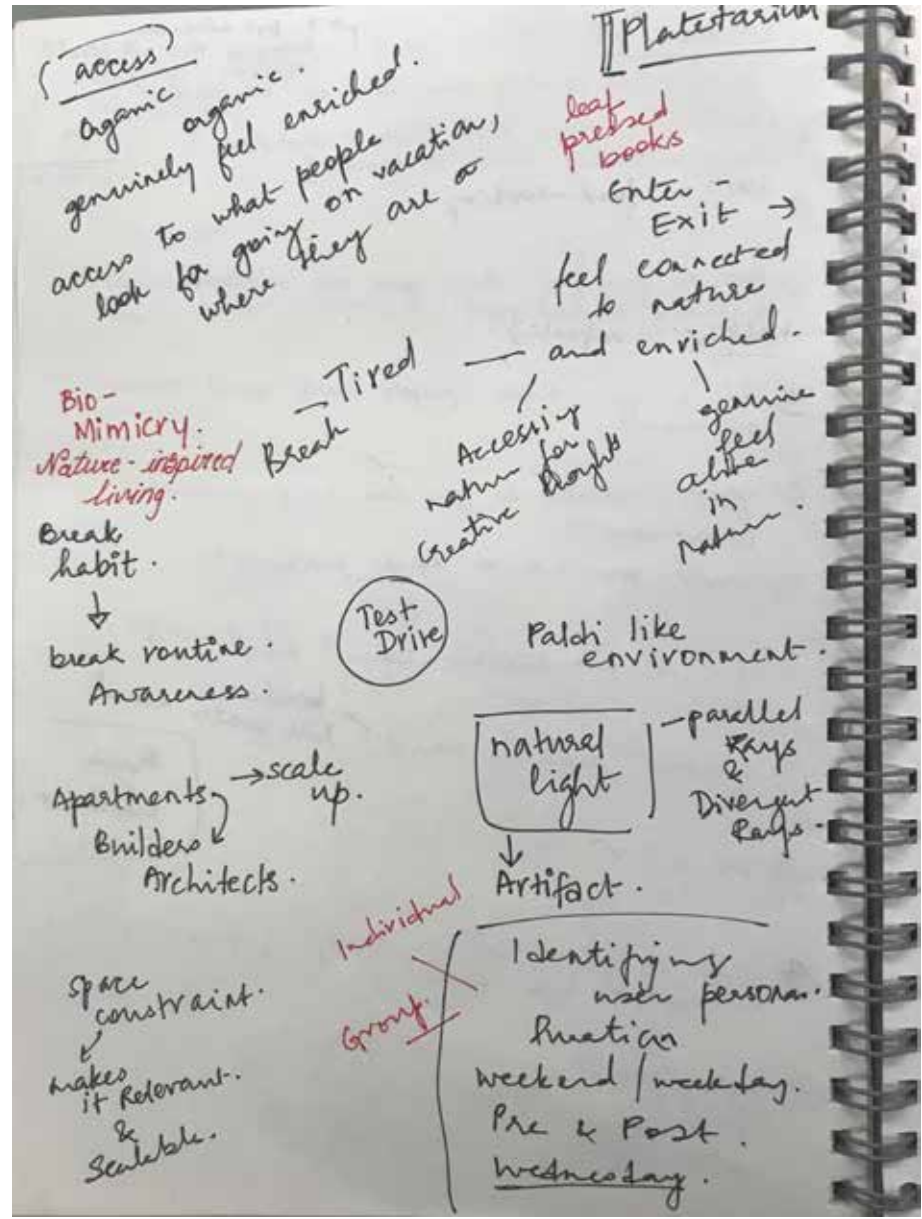 access
organic
organic.
genuinely feel enriched.
access to what people
look for going on vacation,
where they are a
Platetarium
leaf
pressed
books
Enter -
Exit →
feel connected
to nature
and enriched.
Tired
Break
Accessing
nature for
creative thoughts
genuine
feel
alive
in
nature.
Bio-
Mimicry.
Nature-inspired
living.
Break
habit.
↓
break routine.
Awareness.
Test
Drive
Paldi like
environment.
natural
light
parallel
Rays
&
Divergent
Rays.
↓
Artifact.
Apartments → scale
up.
Builders
Architects.
space
constraint.
makes
it Relevant.
&
Scalable.
Individual
Group.
Identifying
user persona.
weekend / weekday.
Pre & Post.
Wednesday.